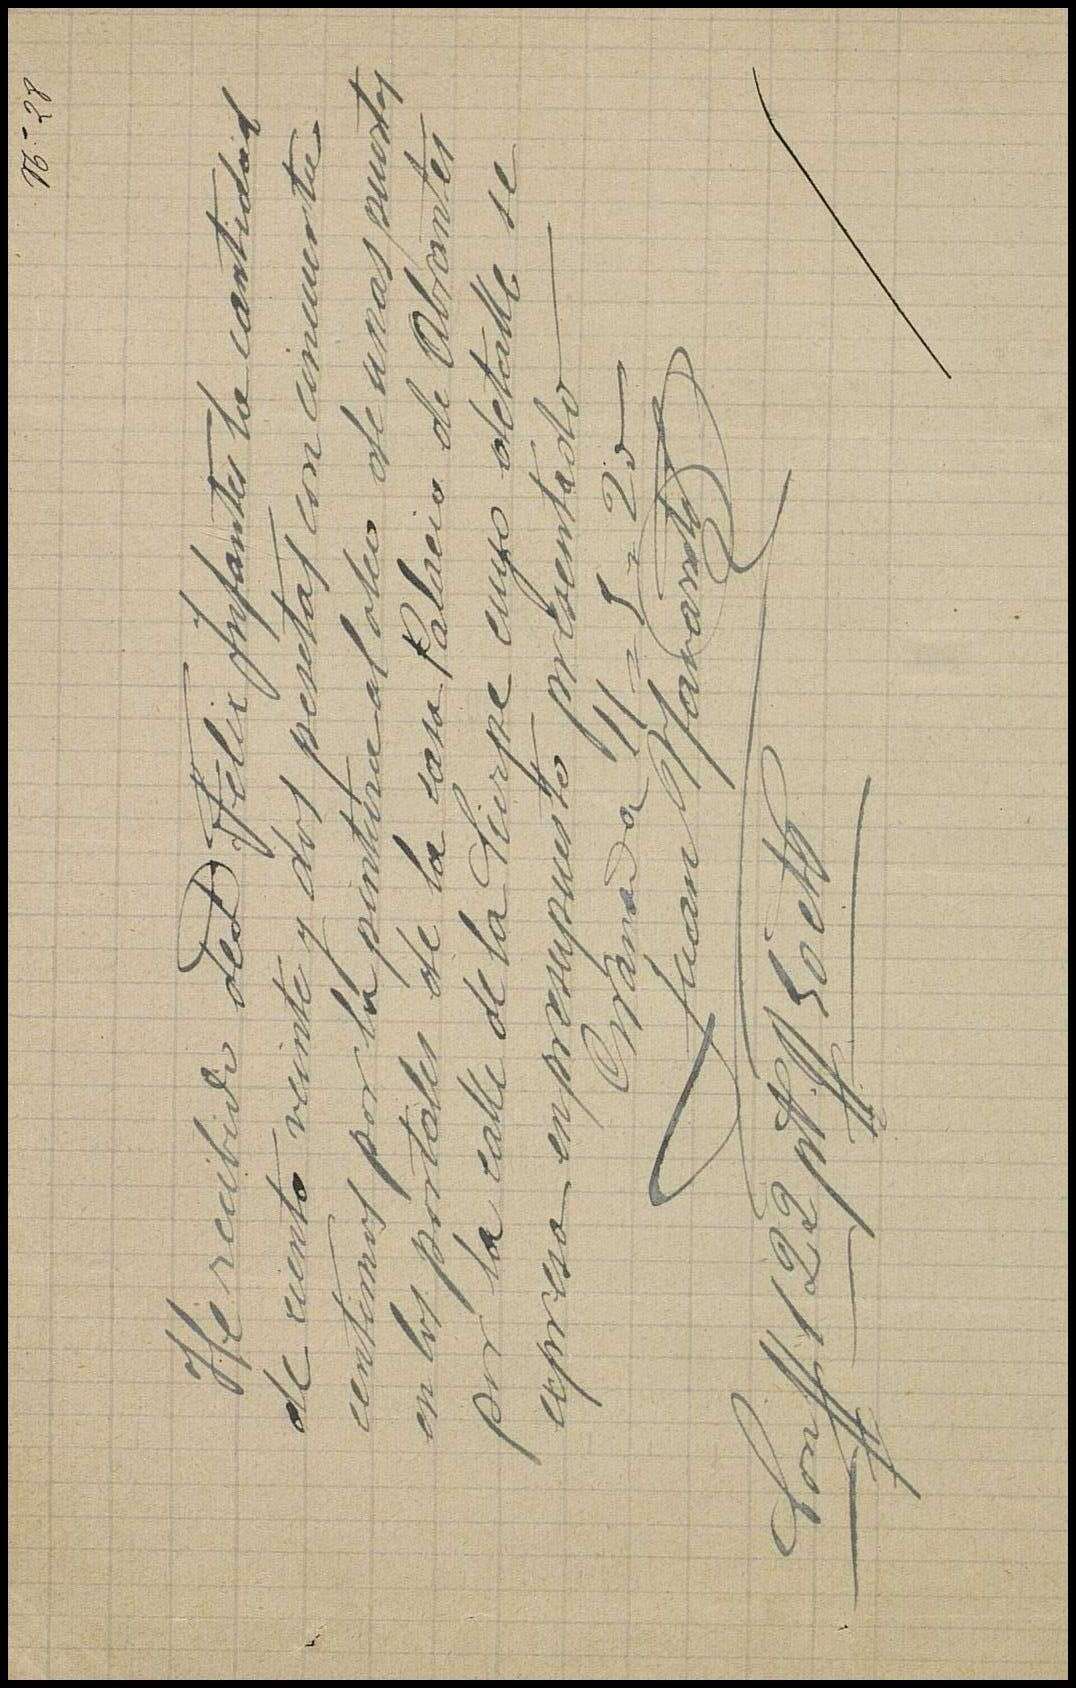 Nº 28
He recibido de D. Félix Infantes la cantidad
de ciento veinte y dos pesetas con cincuenta
centimos por la pintura al oleo de unas puertas
en los portales de la casa Palacio de Abrantes
por la calle de la Sierpe cuyo detalle se
expresa en presupuesto presentado
Granada 11-5-20
Juan
Son 122 pts 50 cts